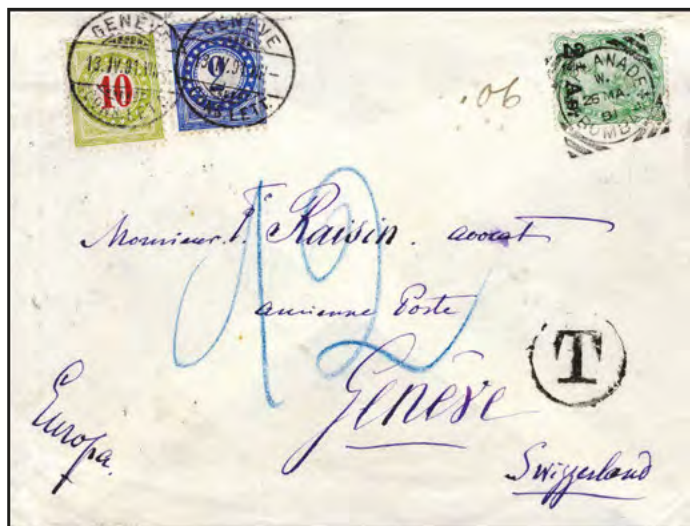 GENÈVE
13.IV.91
10
GENÈVE
LETT.
26 MA.
91
BOMBA
12
Monsieur F. Raisin. avocat
ancienne Poste
T
Genève
Europa.
Swizzerland